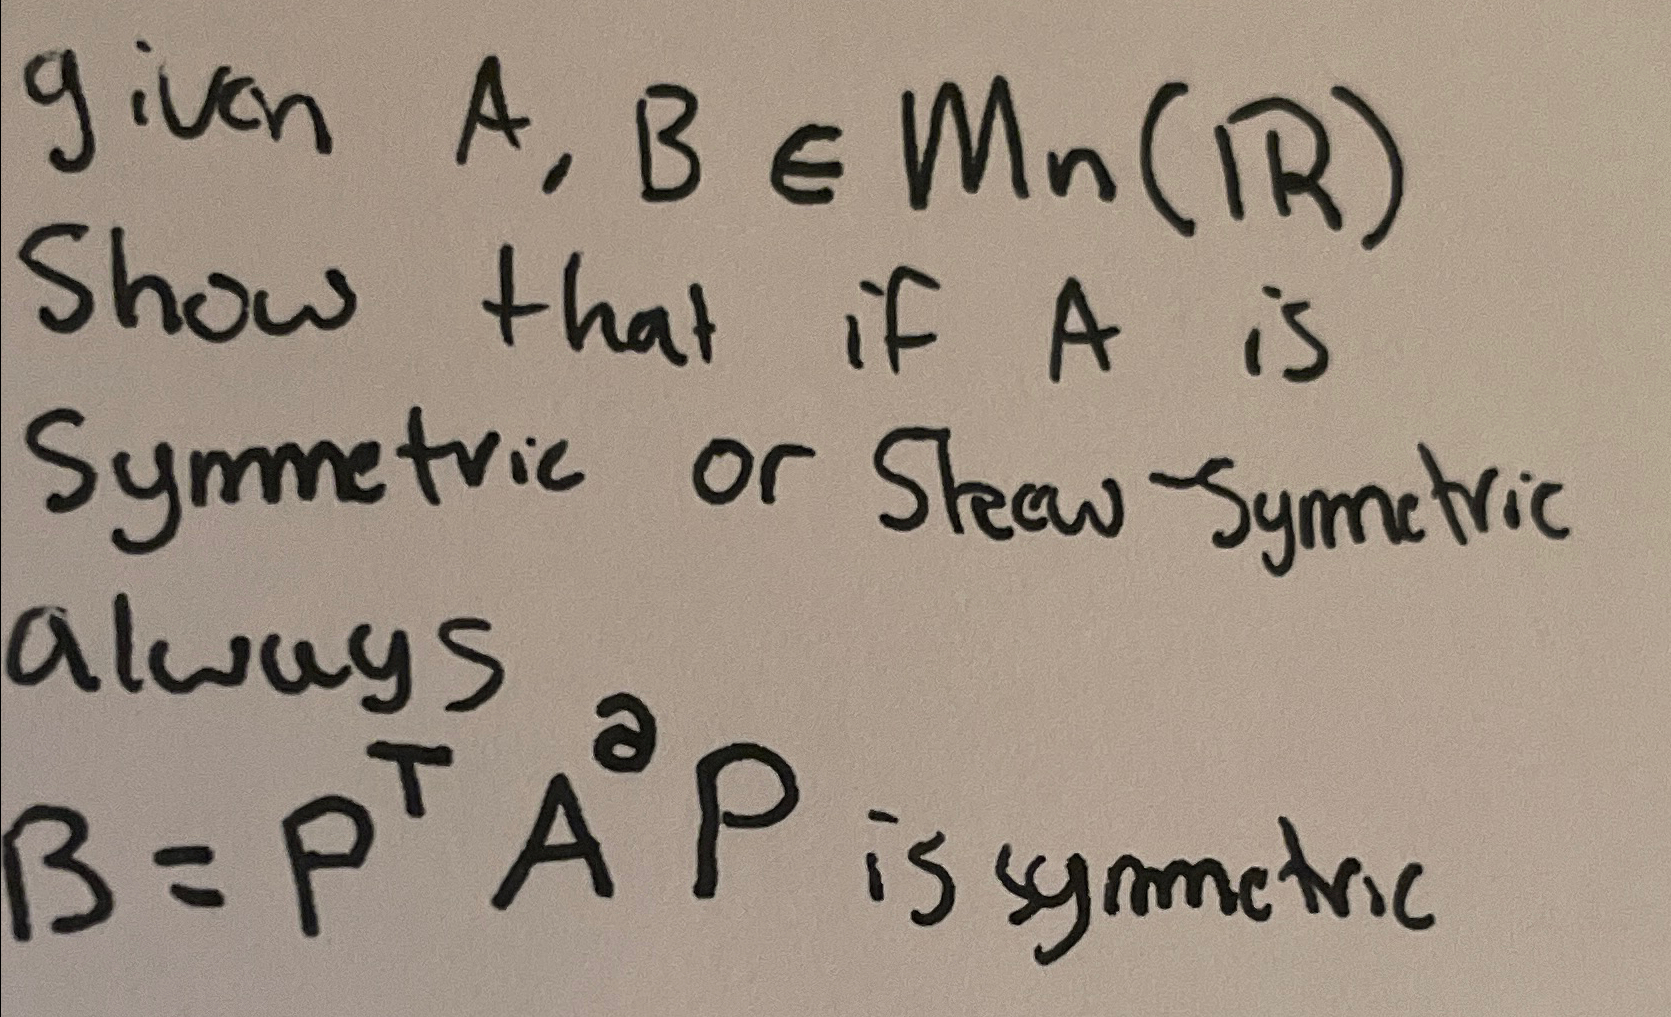 given A, B ∈ Mn(ℝ)
Show that if A is
Symmetric or Skew-Symmetric
always
B = Pᵀ A² P is symmetric